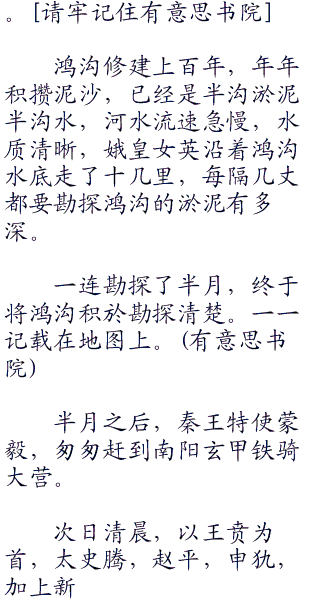 。[请牢记住有意思书院]
鸿沟修建上百年，年年
积攒泥沙，已经是半沟淤泥
半沟水，河水流速急慢，水
质清晰，娥皇女英沿着鸿沟
水底走了十几里，每隔几丈
都要勘探鸿沟的淤泥有多
深。
一连勘探了半月，终于
将鸿沟积於勘探清楚。一一
记载在地图上。(有意思书
院)
半月之后，秦王特使蒙
毅，匆匆赶到南阳玄甲铁骑
大营。
次日清晨，以王贲为
首，太史腾，赵平，申犰，
加上新